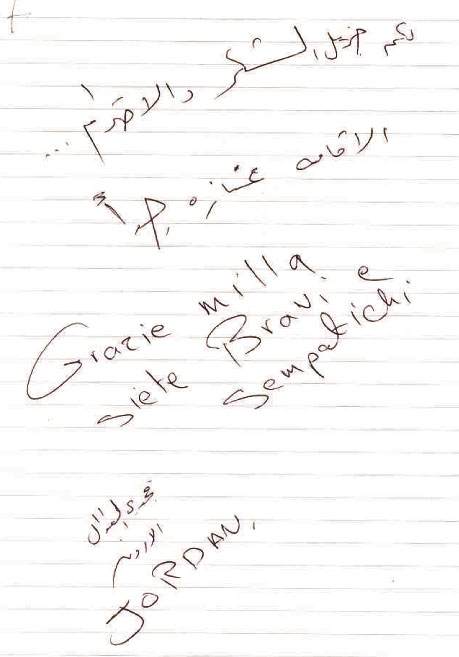 لكم جزيل الشكر والاحترام ...
الاقامه ممتازه جداً
Grazie milla
siete Bravi e
sempatichi
الاردن
JORDAN.